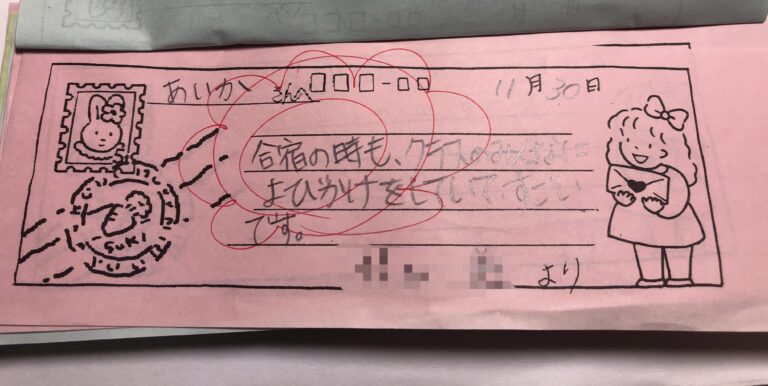 あいか さんへ □□□-□□ 11月30日
合宿の時も、クラスのみんなに
よびかけをしていて、すごい
です。
より
SUKI